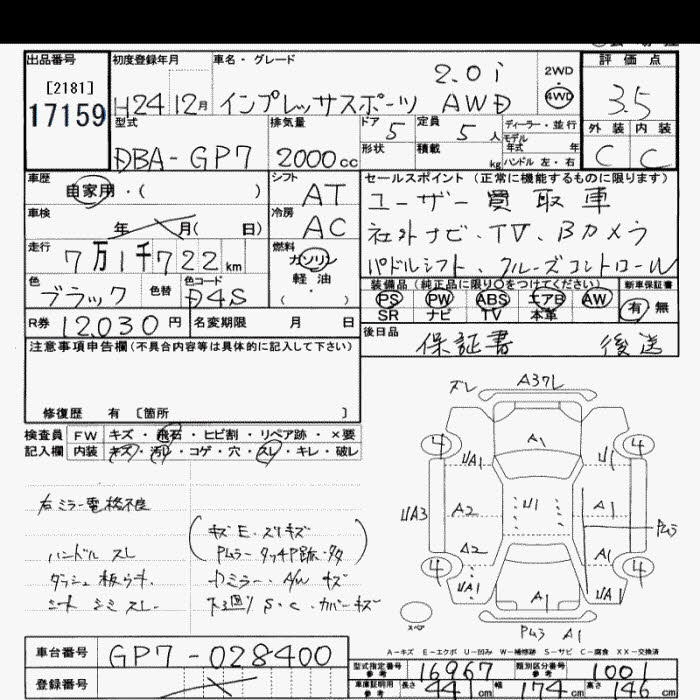 出品番号 初度登録年月 車名・グレード 評価点
[2181] 2.0i 2WD
17159 H24 12月 インプレッサスポーツ AWD 4WD 3.5
型式 排気量 ドア 5 定員 5人 ディーラー・並行 外装 内装
モデル年式 年
DBA-GP7 2000cc 形状 積載 kg ハンドル 左・右 C C
車歴 シフト セールスポイント (正常に機能するものに限ります)
自家用・( ) AT ユーザー買取車
車検 冷房
年 月( 日) AC 社外ナビ、TV、Bカメラ
走行 燃料
7万1千722km ガソリン パドルシフト、クルーズコントロール
色 色替 色コード 軽油 装備品 (純正品に限り○をつけてください) 新車保証書
ブラック D4S ( ) PS PW ABS エアB AW 有 無
SR ナビ TV 本革
R券 12,030円 名変期限 月 日 後日品 保証書 後送
注意事項申告欄(不具合内容等は具体的に記入して下さい)
修復歴 有 [箇所 ]
検査員 FW キズ・飛石・ヒビ割・リペア跡・×要
記入欄 内装 キズ・汚レ・コゲ・穴・スレ・キレ・破レ
スレ A37L
4 A1 4
UA1 U1
UA3 A2 U1 A1
A2 A1
4 4
UA1 A1 UA1
スペア
A1
右ミラー電格不良
ハンドル スレ
シート シミ スレ
A-キズ E-エクボ U-凹み W-補修跡 S-サビ C-腐食 XX-交換済
車台番号 GP7-028400
型式指定番号 参考 16967 類別区分番号 参考 1001
登録番号
車庫証明用 参考 長さ 441cm 幅 174cm 高さ 146cm